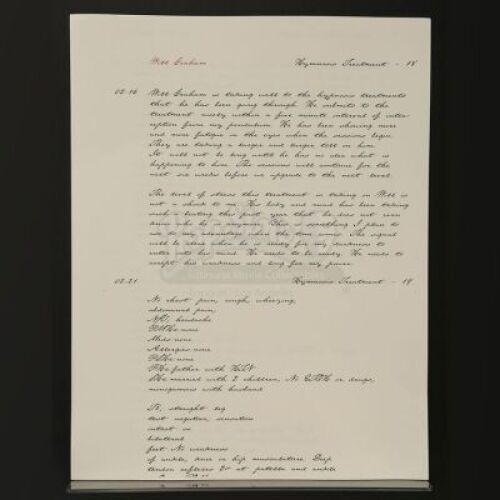 Will Graham Hypnosis Treatment - 18
02.16 Will Graham is taking well to the hypnosis treatments
that he has been going through. He submits to the
treatment nicely within a five minute interval of inter
ception from my pendulum. He has been showing more
and more fatigue in the eyes when the sessions begin.
They are taking a larger and larger toll on him.
It will not be long until he has no idea what is
happening to him. The sessions will continue for the
next six weeks before we upgrade to the next level.
The level of stress this treatment is taking on Will is
not a shock to me. His body and mind has been taking
such a beating this past year that he does not even
know who he is anymore. This is something I plan to
use to my advantage when the time comes. The signal
will be clear when he is ready for my darkness to
enter into his mind. He needs to be ready. He needs to
accept his weakness and long for my power.
02.21 Hypnosis Treatment - 19
No chest pain, cough, wheezing,
abdominal pain,
headache
none
Meds none
Allergies none
none
father with HTN
married with 2 children, No or drugs,
monogamous with husband
straight leg
test negative, sensation
intact in
bilateral
feet No weakness
of ankle, knee or hip musculature Deep
tendon reflexes 2+ at patella and ankle